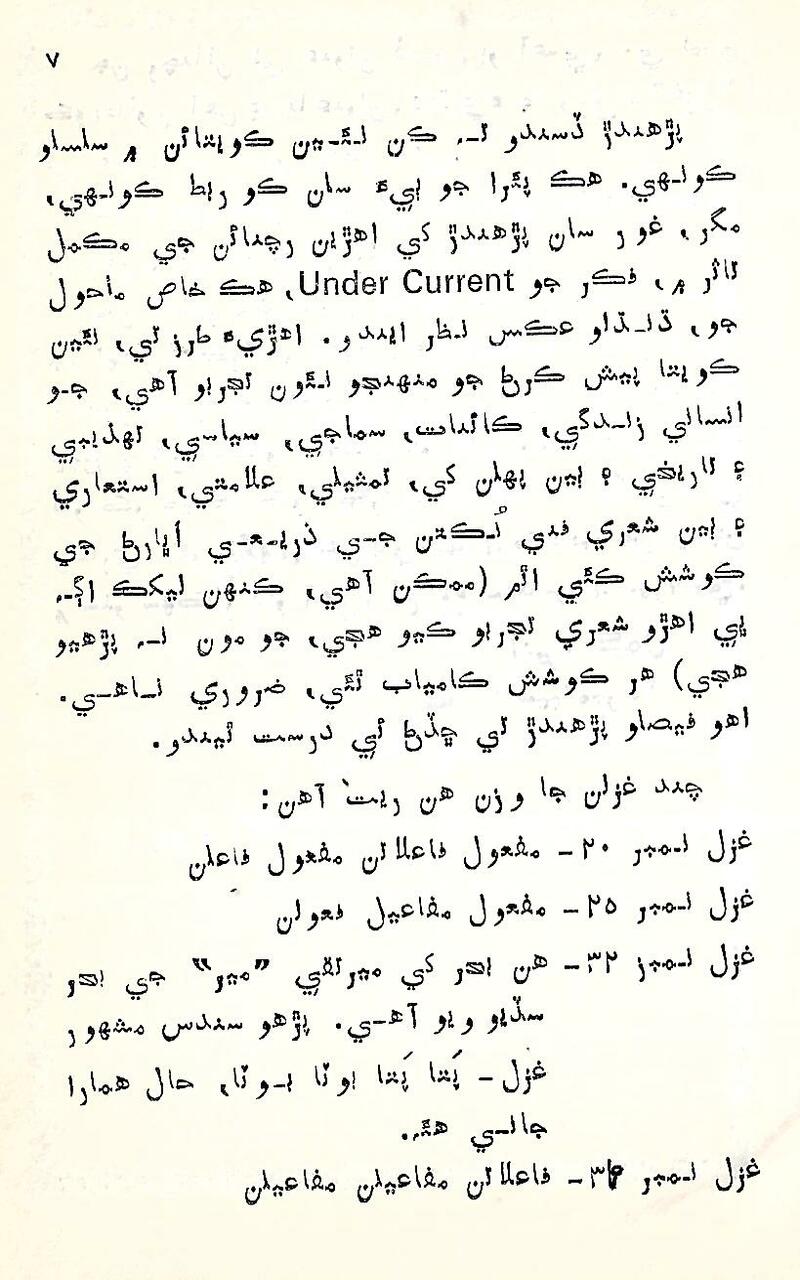 ٧
پڙهندڙ ڏسندو تہ ڪن نثـين ڪويتائن ۾ سلسلو
ڪونهي. هڪ پئرا جو ٻيءَ سان ڪو ربط ڪونهي،
مگر، غور سان پڙهندڙ کي اهڙين رچنائن جي مڪمل
تاثر ۾، فڪر جو Under Current، هڪ خاص ماحول
جو، ڌنڌلو عڪس نظر ايندو. اهڙيءَ طرز تي، نئين
ڪويتا پيش ڪرڻ جو منهنجو نئون تجربو آهي، جو
انساني زندگي، ڪائنات، سماجي، سياسي، تهذيبي
۽ تاريخي ۽ ٻين پهلن کي، تمثيلي، علامتي، استعاري
۽ ٻين شعري فني نُڪتن جي ذريعي اُڀارڻ جي
ڪوشش ڪئي اٿم (ممڪن آهي، ڪنهن ليکڪ اڳہ
ٻي اهڙو شعري تجربو ڪيو هجي، جو مون نہ پڙهيو
هجي) هر ڪوشش ڪامياب ٿئي، ضروري ناهي.
اهو فيصلو پڙهندڙ تي ڇڏڻ ئي درست ٿيندو.
چند غزلن جا وزن هن ريت آهن:
غزل نمبر ٢٠ـ مفعول فاعلاتن مفعول فاعلن
غزل نمبر ٢٥ـ مفعول مفاعيل فعولن
غزل نمبر ٣٢ـ هن بحر کي ميرتقي ”مير“ جي بحر
سڏيو ويو آهي. پڙهو سندس مشهور
غزل ـ پَتا پَتا بوٽا بوٽا، حال همارا
جاني هئہ.
غزل نمبر ٣۴ـ فاعلاتن مفاعيلن مفاعيلن